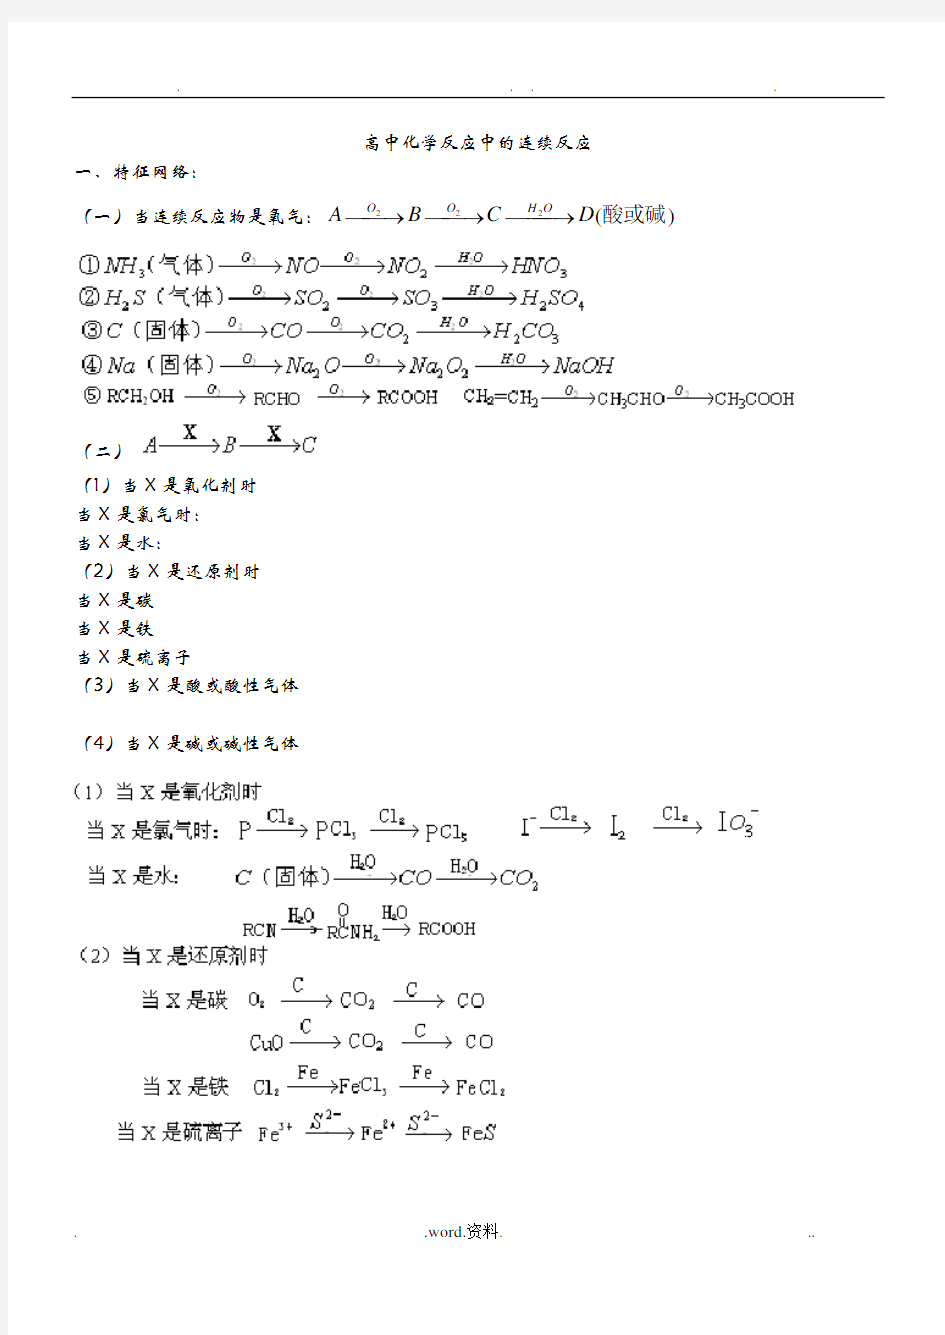 高中化学反应中的连续反应
一、特征网络：
（一）当连续反应物是氧气：A —O₂→ B —O₂→ C —H₂O→ D(酸或碱)
①NH₃（气体）—O₂→NO—O₂→NO₂—H₂O→HNO₃
②H₂S（气体）—O₂→SO₂—O₂→SO₃—H₂O→H₂SO₄
③C（固体）—O₂→CO—O₂→CO₂—H₂O→H₂CO₃
④Na（固体）—O₂→Na₂O—O₂→Na₂O₂—H₂O→NaOH
⑤RCH₂OH —O₂→ RCHO —O₂→ RCOOH CH₂=CH₂—O₂→CH₃CHO—O₂→CH₃COOH
（二） A—X→B—X→C
（1）当 X 是氧化剂时
当 X 是氯气时：
当 X 是水：
（2）当 X 是还原剂时
当 X 是碳
当 X 是铁
当 X 是硫离子
（3）当 X 是酸或酸性气体
（4）当 X 是碱或碱性气体
（1）当 X 是氧化剂时
当 X 是氯气时： P—Cl₂→PCl₃—Cl₂→PCl₅ I⁻—Cl₂→ I₂ —Cl₂→ IO₃⁻
当 X 是水： C（固体）—H₂O→CO—H₂O→CO₂
RCN—H₂O→RCONH₂—H₂O→RCOOH
（2）当 X 是还原剂时
当 X 是碳 O₂ —C→ CO₂ —C→ CO
CuO—C→CO₂ —C→ CO
当 X 是铁 Cl₂—Fe→FeCl₃—Fe→FeCl₂
当 X 是硫离子 Fe³⁺—S²⁻→Fe²⁺—S²⁻→FeS
.word.资料.